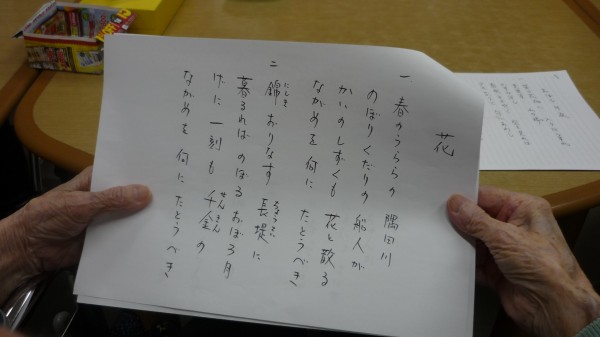 花
一 春のうららの 隅田川
のぼりくだりの 船人が
かいのしずくも 花と散る
ながめを 何に たとうべき
二 錦 おりなす 長堤に
にしき
ちょうてい
暮るれば のぼる おぼろ月
げに 一刻も 千金の
せんきん
ながめを 何に たとうべき